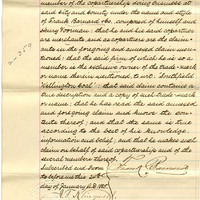 member of the copartnership doing business at
said city and county under the name and style
of Frank Barnard &c. composed of himself and
Henry Foreman that he and his said copartners
are residents and as copartners are the claim-
ants in the foregoing and annexed claim men-
tioned: that the said firm of which he is so a
member is the exclusive owner of the trade-mark
or name therein mentioned to wit: Southfield
Wellington Coal: that said claim contains a
true description and a copy of such trade-mark
or name: that he has read the said annexed
and foregoing claim and knows the con-
tents thereof; and that the same is true
according to the best of his knowledge,
information and belief; and that he makes said
claim on behalf of said copartnership and of the
several members thereof.
Subscribed and sworn
to before me this
day of January A.D. 188
Frank Barnard
2259